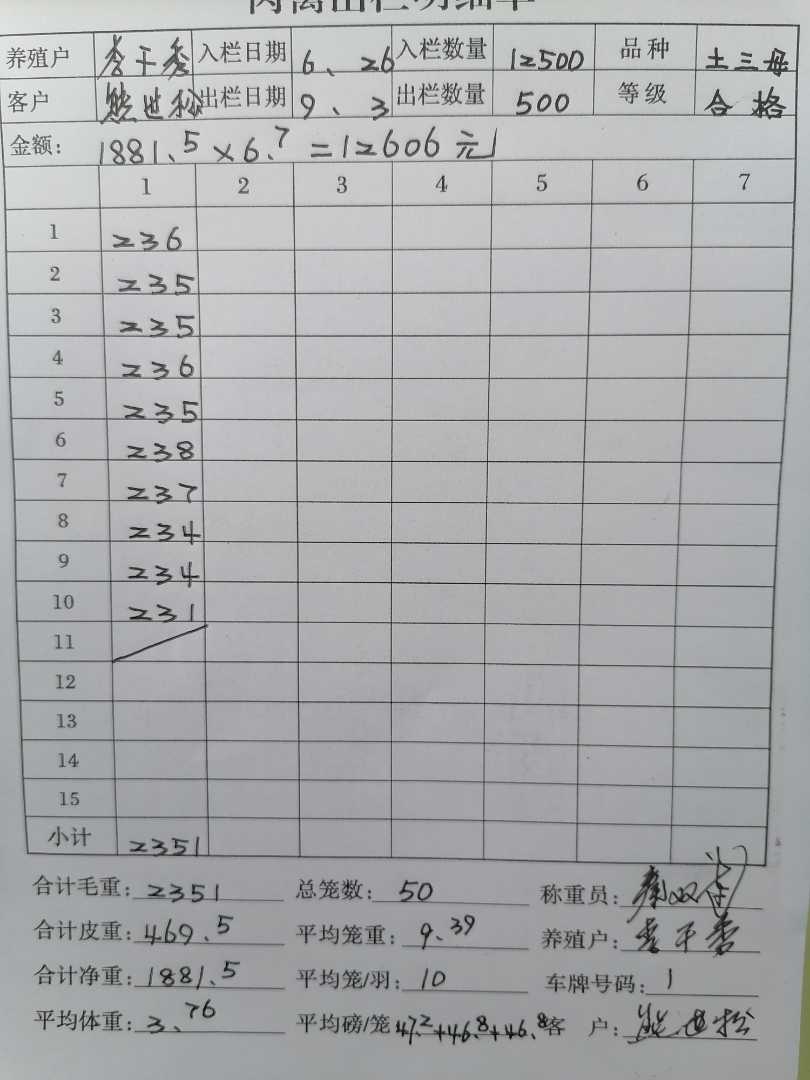 肉禽出栏明细单
养殖户 李干秀 入栏日期 6、26 入栏数量 12500 品种 土三母
客户 熊世松 出栏日期 9、3 出栏数量 500 等级 合格
金额: 1881.5×6.7=12606元
1 2 3 4 5 6 7
1 236
2 235
3 235
4 236
5 235
6 238
7 237
8 234
9 234
10 231
11
12
13
14
15
小计 2351
合计毛重: 2351 总笼数: 50 称重员:
合计皮重: 469.5 平均笼重: 9.39 养殖户: 李干秀
合计净重: 1881.5 平均笼/羽: 10 车牌号码: 1
平均体重: 3.76 平均磅/笼 47.2+46.8+46.8 客 户: 熊世松